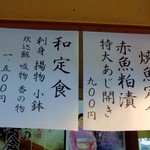 焼魚定食
赤魚粕漬
特大あじ開き
九〇〇円
和定食
刺身 揚物 小鉢
炊込飯 吸物 香の物
一、五〇〇円